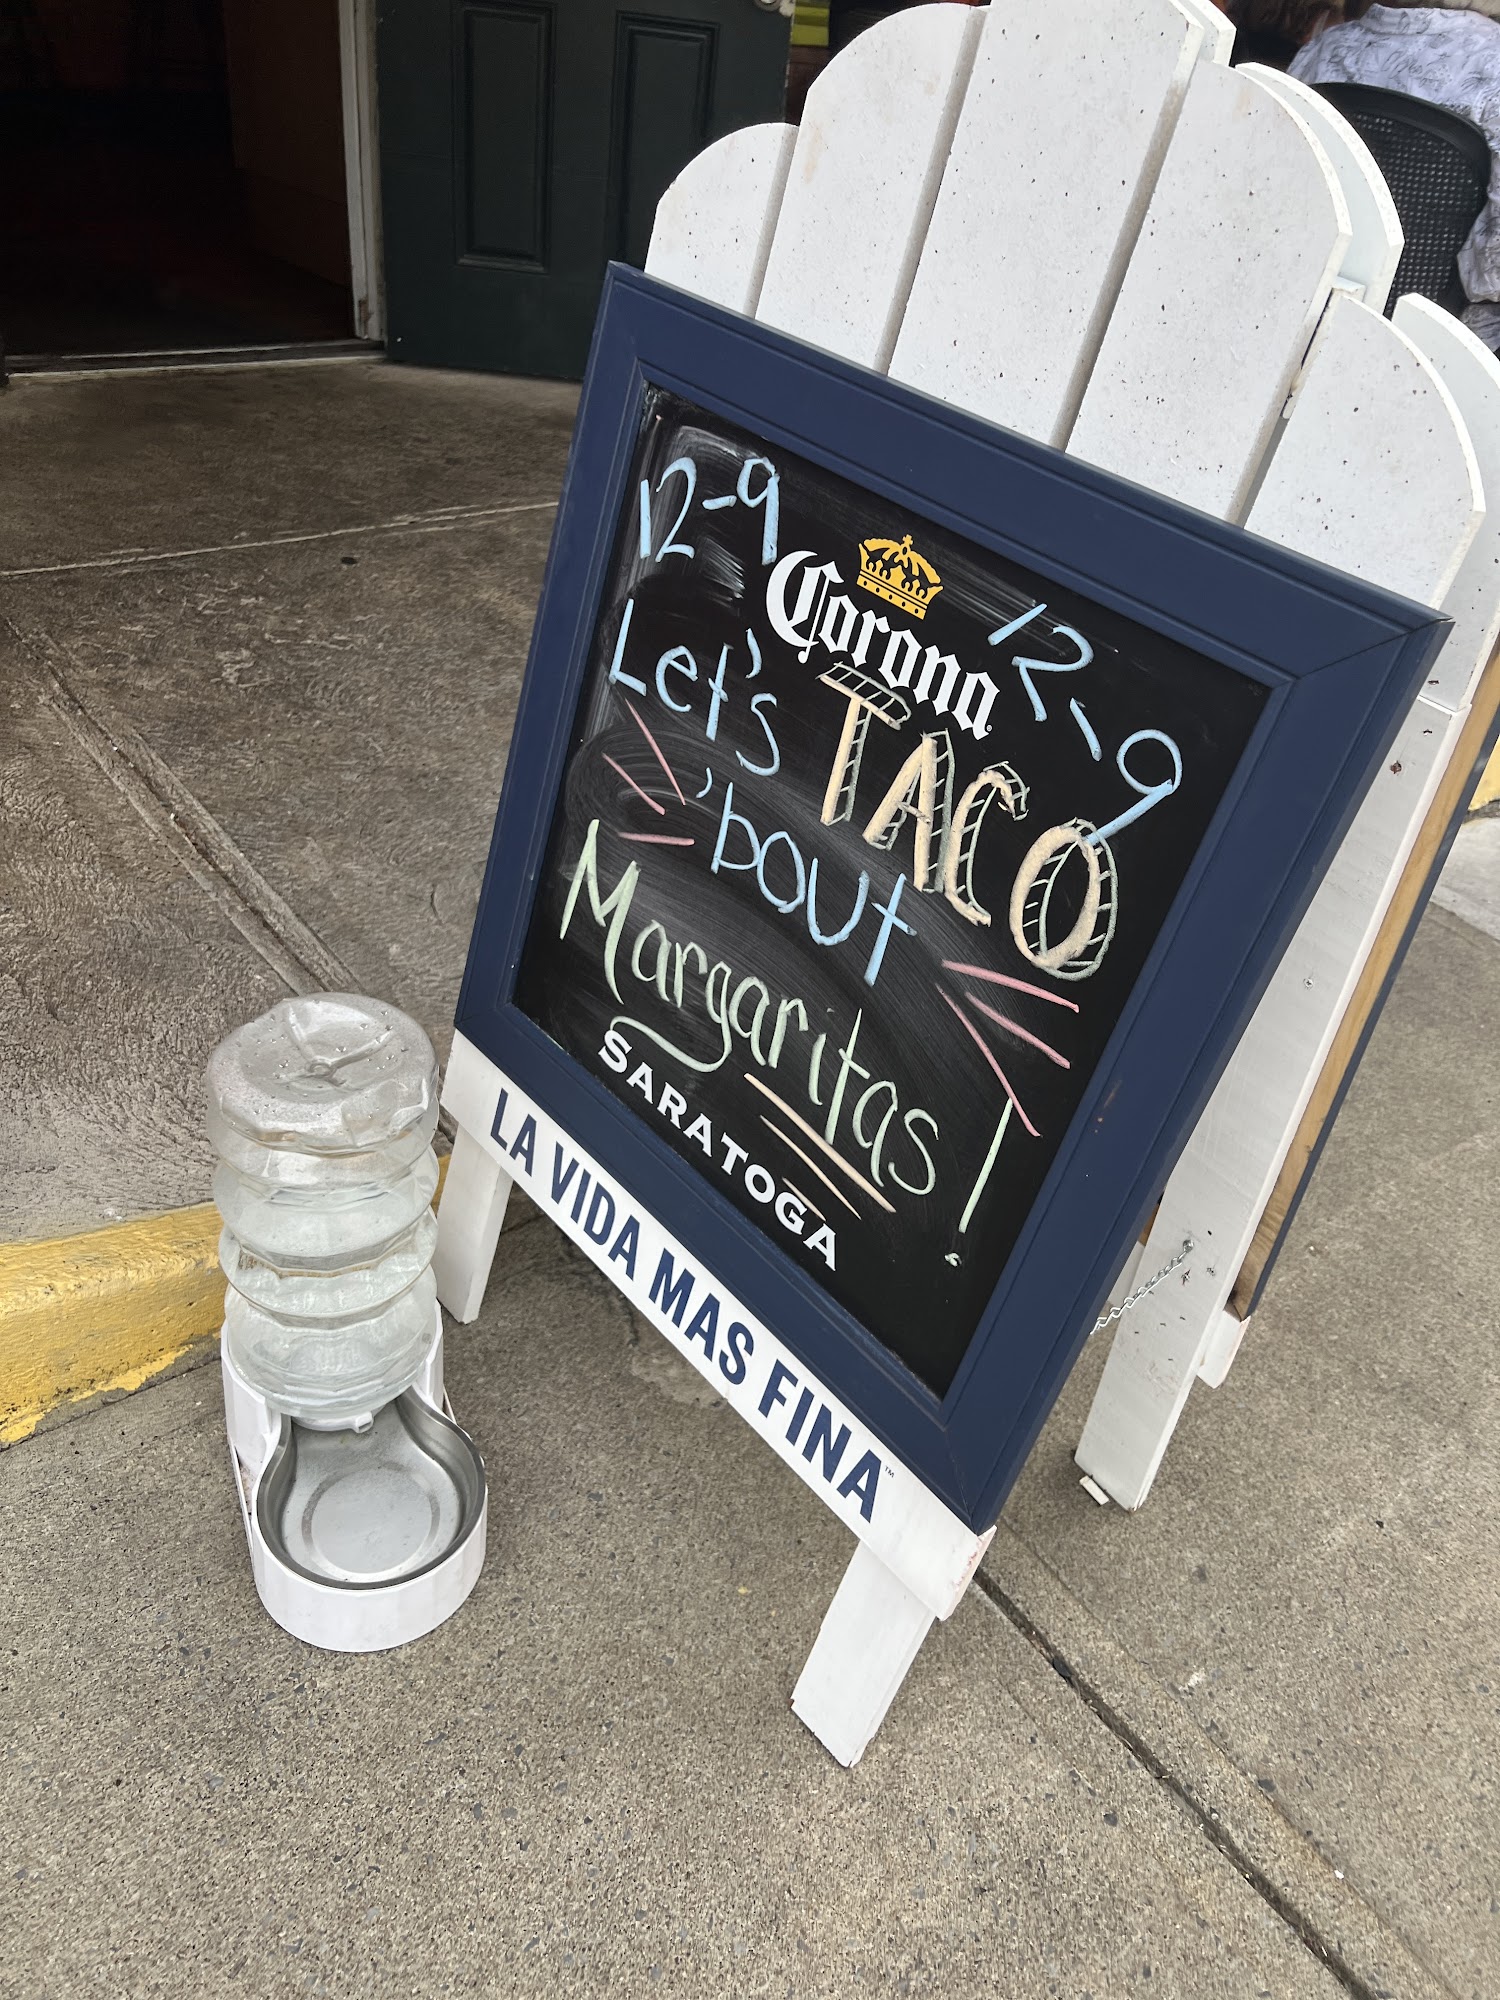 12-9
Corona
12-9
Let's TACO
'bout
Margaritas!
SARATOGA
LA VIDA MAS FINA™